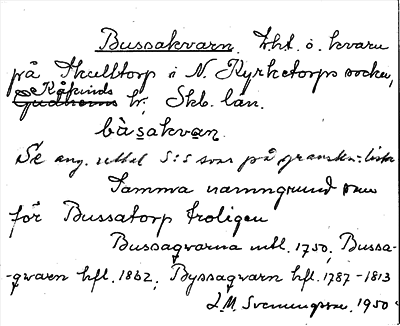 Bussakvarn. Lht. o. kvarn
på Skulltorp i N. Kyrketorps socken,
Kåkinds
Gudhems hr, Skb. län.
bàsakvan.
Se ang. uttal s:s svar på granskn:lista
Samma namngrund som
för Bussatorp troligen
Bussaqvarna mtl. 1750, Bussa-
-qwarn hfl. 1862, Byssaqvarn hfl. 1787-1813
J.M. Svennungsson. 1950